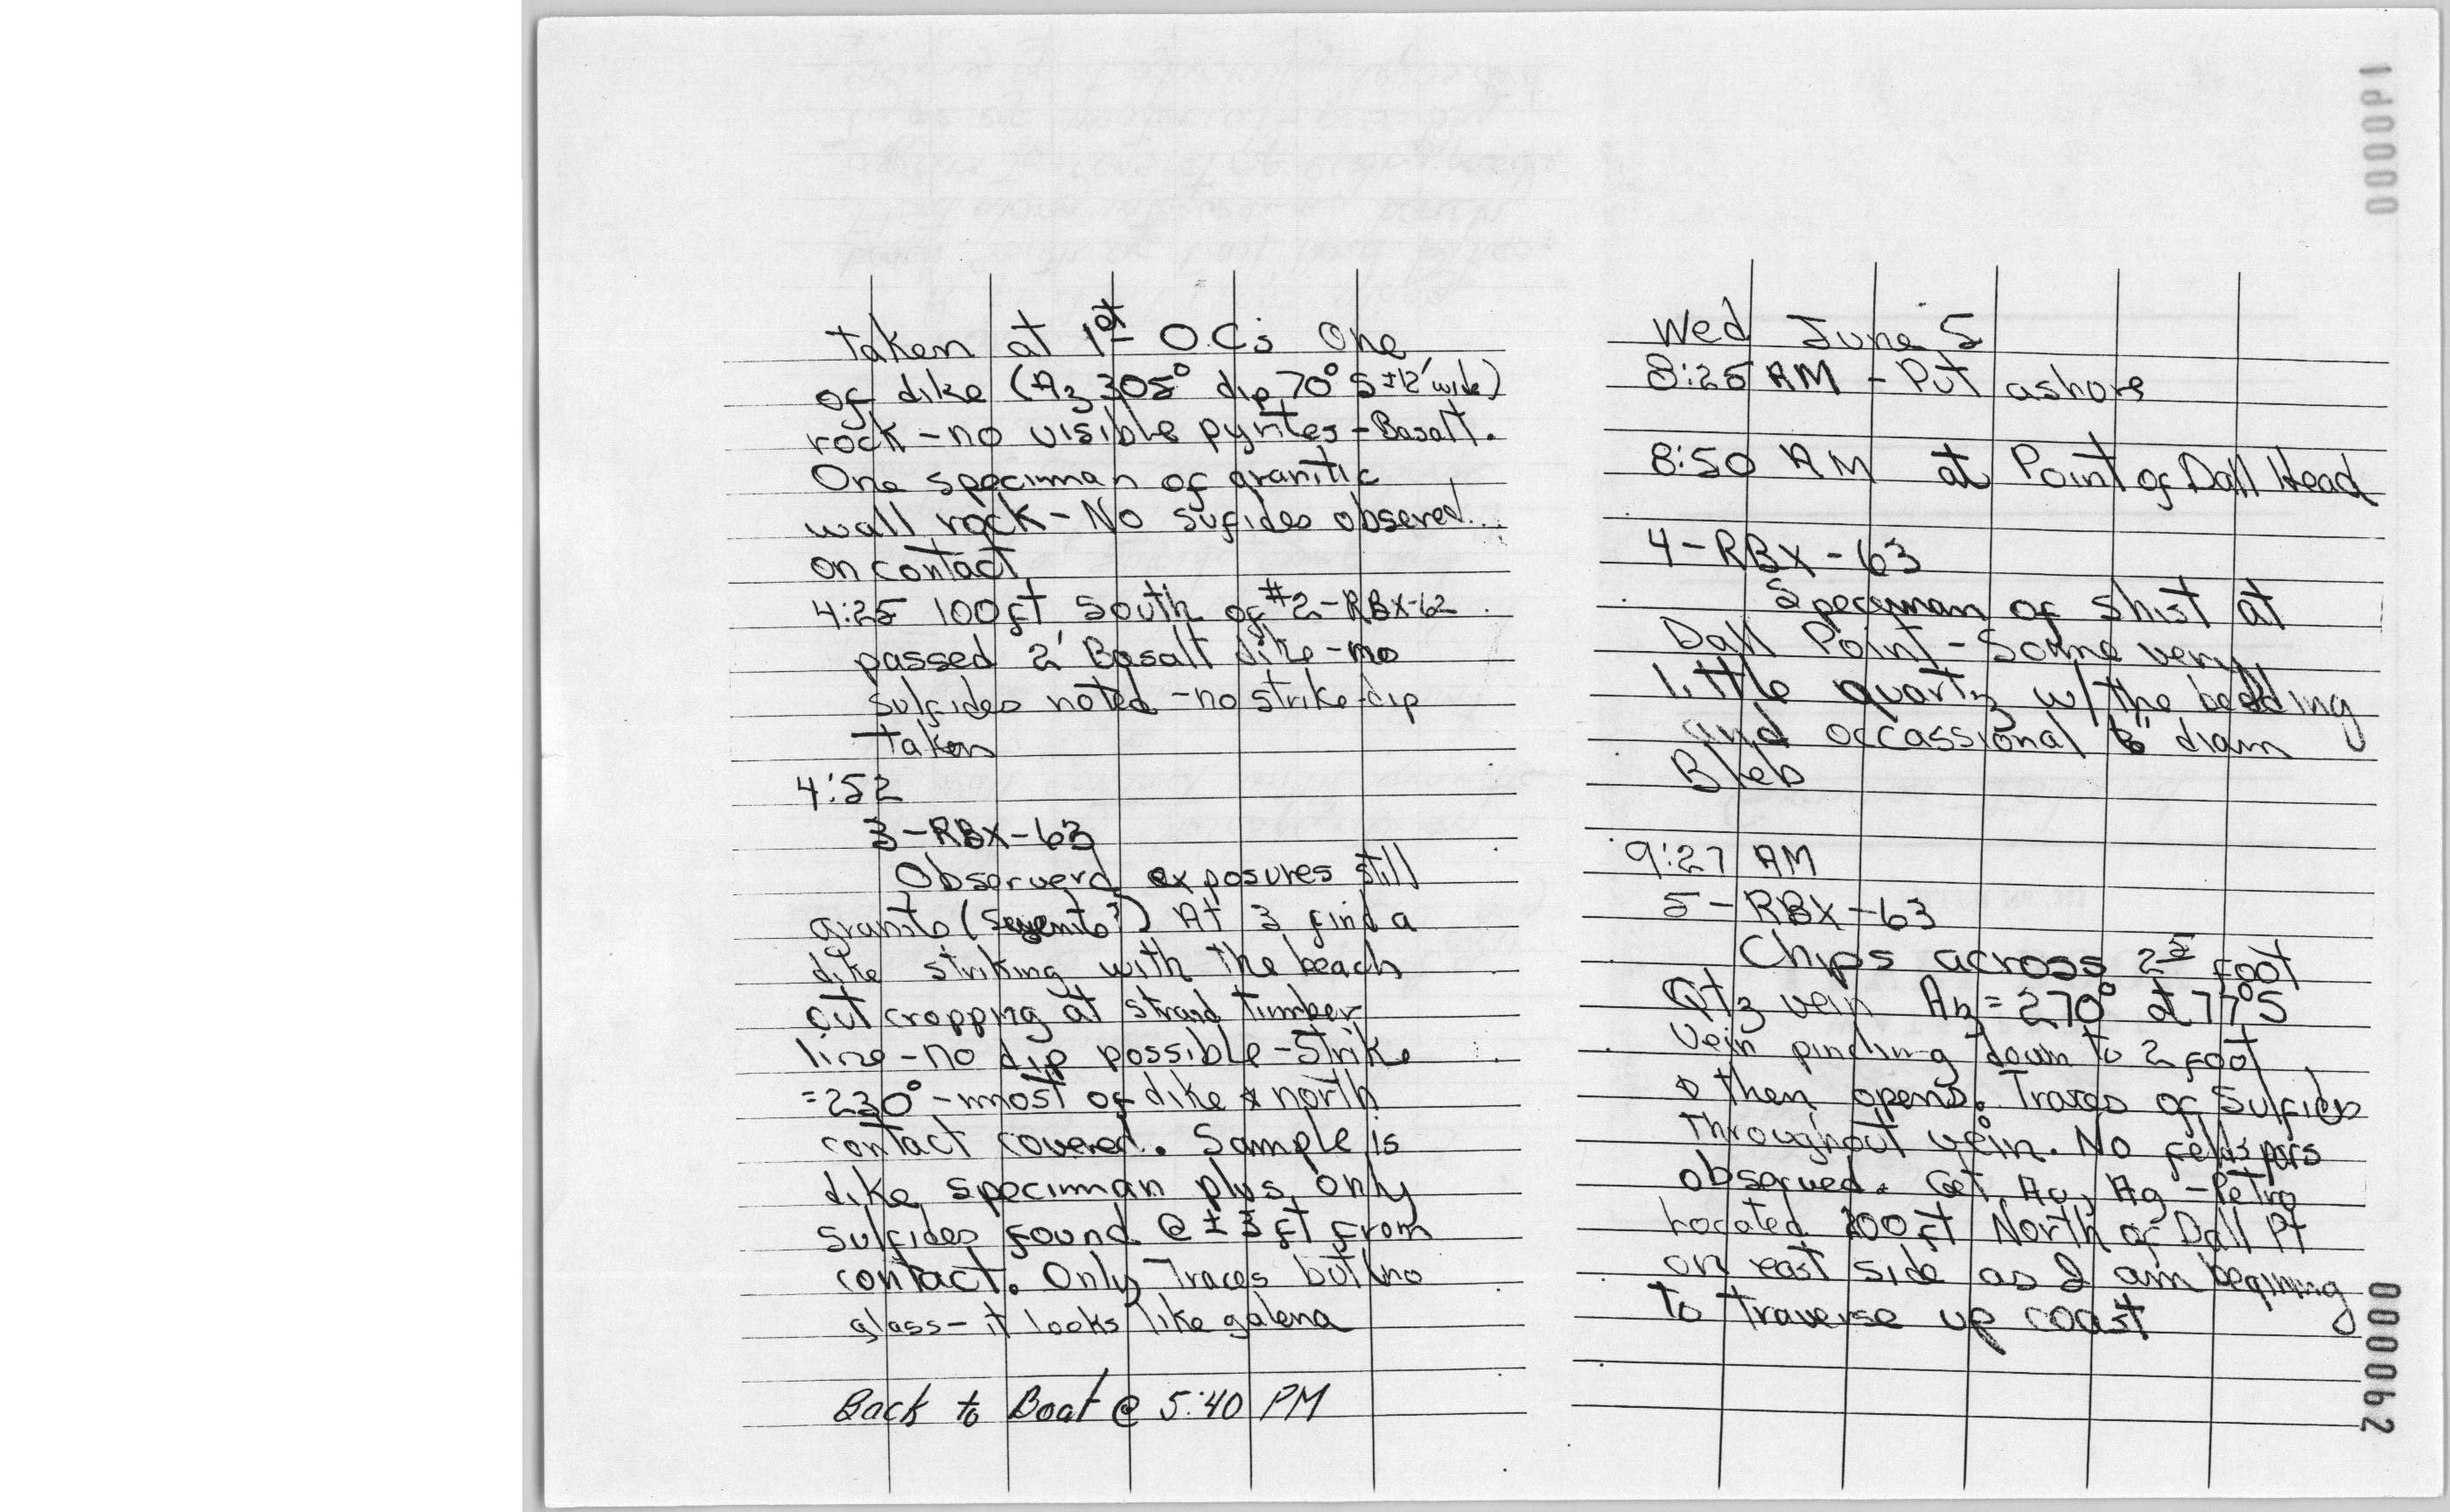 taken at 1st O.C.s One
of dike (Az 305° dip 70° S ±12' wide)
rock - no visible pyrites - Basalt.
One speciman of granitic
wall rock - No sufides obsered
on contact.
4:25 100 ft south of #2-RBX-62
passed 2' Basalt dike - no
sulfides noted - no strike-dip
taken
4:52
3-RBX-63
Observerd exposures still
granite (Seyenite?) At 3 find a
dike striking with the beach
out cropping at strand timber
line - no dip possible - Strike
=230° - most of dike & north
contact covered. Sample is
dike speciman plus only
sulfides found @ ± 3 ft from
contact. Only Traces but no
glass - it looks like galena
Back to Boat @ 5:40 PM
000061
Wed June 5
8:25 AM - Put ashore
8:50 AM at Point of Dall Head
4-RBX-63
Speciman of shist at
Dall Point - Some very
little quartz w/ the bedding
and occassional 6" diam
Bleb
9:27 AM
5-RBX-63
Chips across 2 5 foot
Qtz vein Az = 270° d 77° S
Vein pinching down to 2 foot
& then opens. Traces of Sulfides
throughout vein. No feldspars
observed. Get Au, Ag - Petro
Located 200 ft North of Dall Pt
on east side as I am begining
to traverse up coast
000062